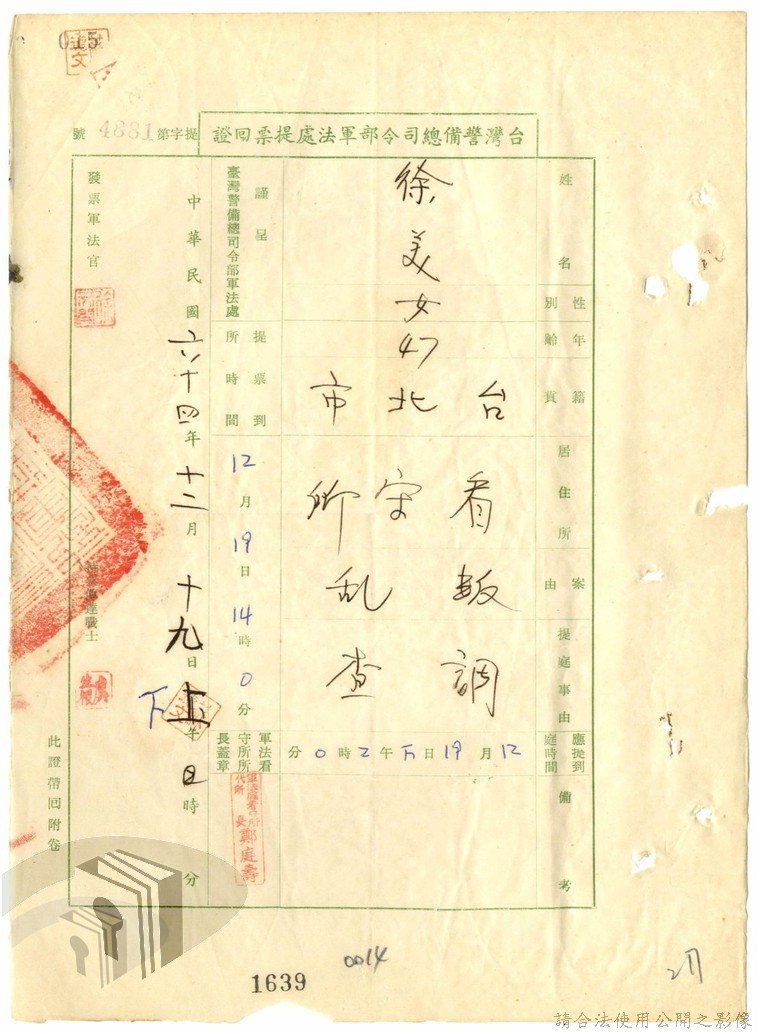 015
台灣警備總司令部軍法處提票回證
提字第4881號
姓名
徐美
性別
女
年齡
47
籍貫
台北市
居住所
看守所
案由
叛乱
提庭事由
調查
應提到庭時間
12月19日下午2時0分
備考
謹呈
臺灣警備總司令部軍法處
提票到所時間
12月19日14時0分
軍法看守所所長蓋章
鄭庭壽
中華民國六十四年十二月十九日上下午 時 分
發票軍法官
傳達戰士
此證帶回附卷
0014
1639
請合法使用公開之影像